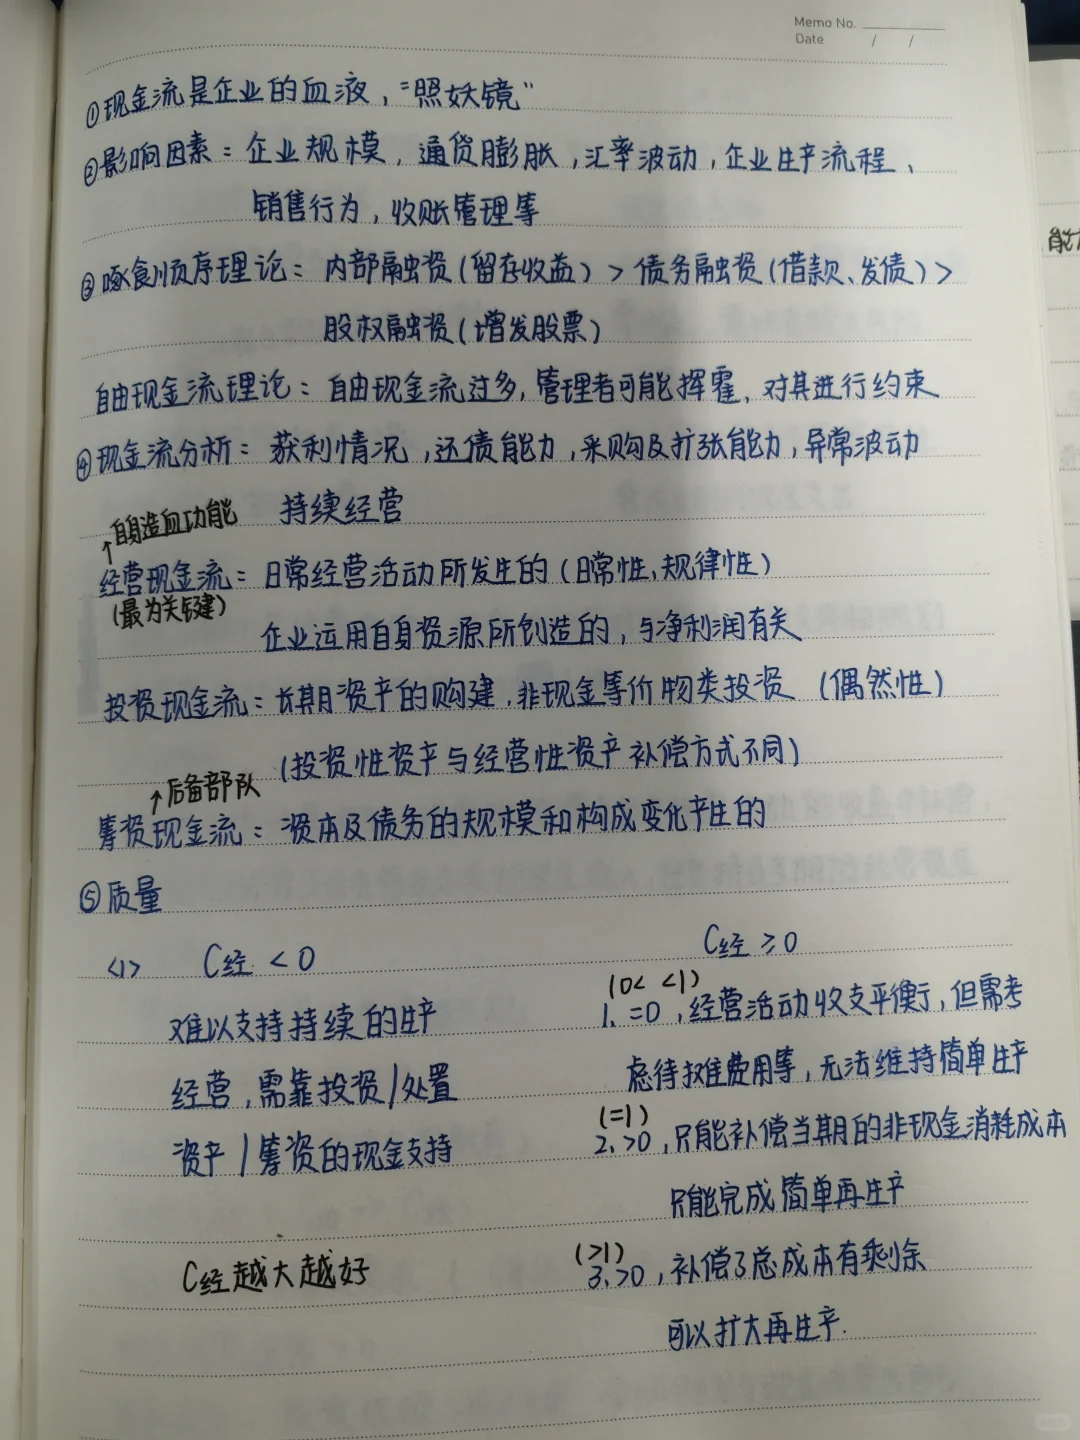 Memo No.
Date / /
①现金流是企业的血液，“照妖镜”
②影响因素：企业规模，通货膨胀，汇率波动，企业生产流程、
销售行为，收账管理等
③啄食顺序理论：内部融资(留存收益)>债务融资(借款、发债)>
股权融资(增发股票)
自由现金流理论：自由现金流过多，管理者可能挥霍，对其进行约束
④现金流分析：获利情况，还债能力，采购及扩张能力，异常波动
持续经营
↑自身造血功能
经营现金流：日常经营活动所发生的(日常性、规律性)
(最为关键)
企业运用自身资源所创造的，与净利润有关
投资现金流：长期资产的购建，非现金等价物类投资 (偶然性)
(投资性资产与经营性资产补偿方式不同)
↑后备部队
筹资现金流：资本及债务的规模和构成变化产生的
⑤质量
<1> C经<0
C经≥0
难以支持持续的生产
经营，需靠投资/处置
资产/筹资的现金支持
C经越大越好
(0< <1)
1、=0，经营活动收支平衡，但需考
虑待摊费用等，无法维持简单生产
(=1)
2、>0，只能补偿当期的非现金消耗成本
只能完成简单再生产
(>1)
3、>0，补偿了总成本有剩余
可以扩大再生产.
能力